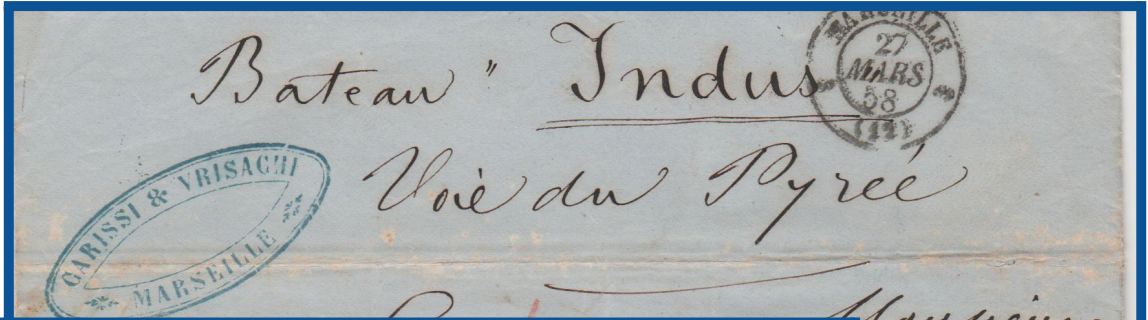 Bateau " Indus
MARSEILLE
27
MARS
58
(12)
Voie du Pyrée
GARISSI & VRISACHI
MARSEILLE
Monsieur